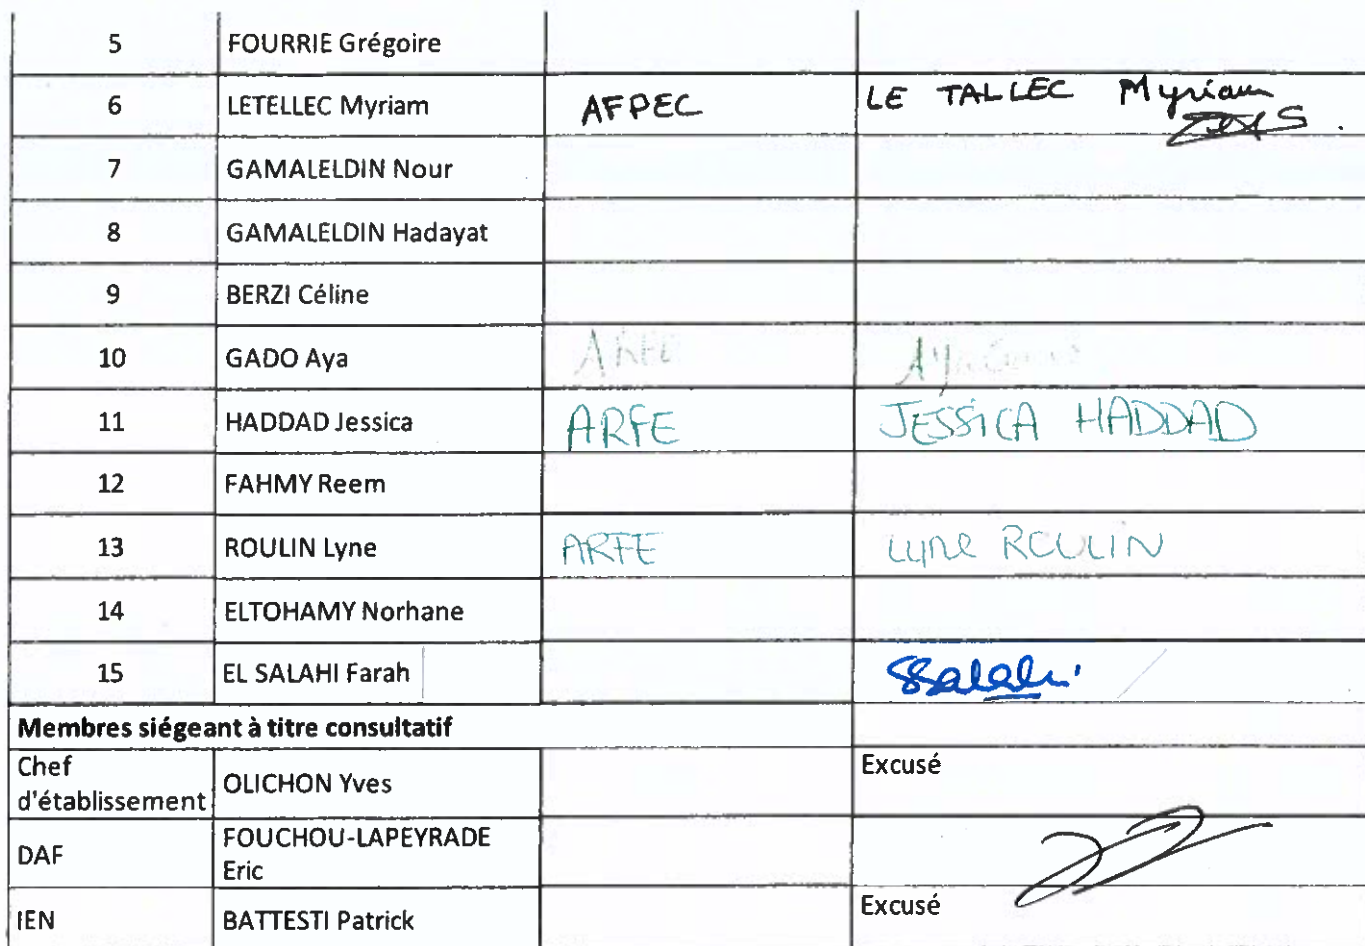 5 FOURRIE Grégoire
6 LETELLEC Myriam AFPEC LE TALLEC Myriam
7 GAMALELDIN Nour
8 GAMALELDIN Hadayat
9 BERZI Céline
10 GADO Aya
11 HADDAD Jessica ARFE JESSICA HADDAD
12 FAHMY Reem
13 ROULIN Lyne ARFE Lyne ROULIN
14 ELTOHAMY Norhane
15 EL SALAHI Farah
Membres siégeant à titre consultatif
Chef
d'établissement OLICHON Yves Excusé
DAF FOUCHOU-LAPEYRADE
Eric
IEN BATTESTI Patrick Excusé